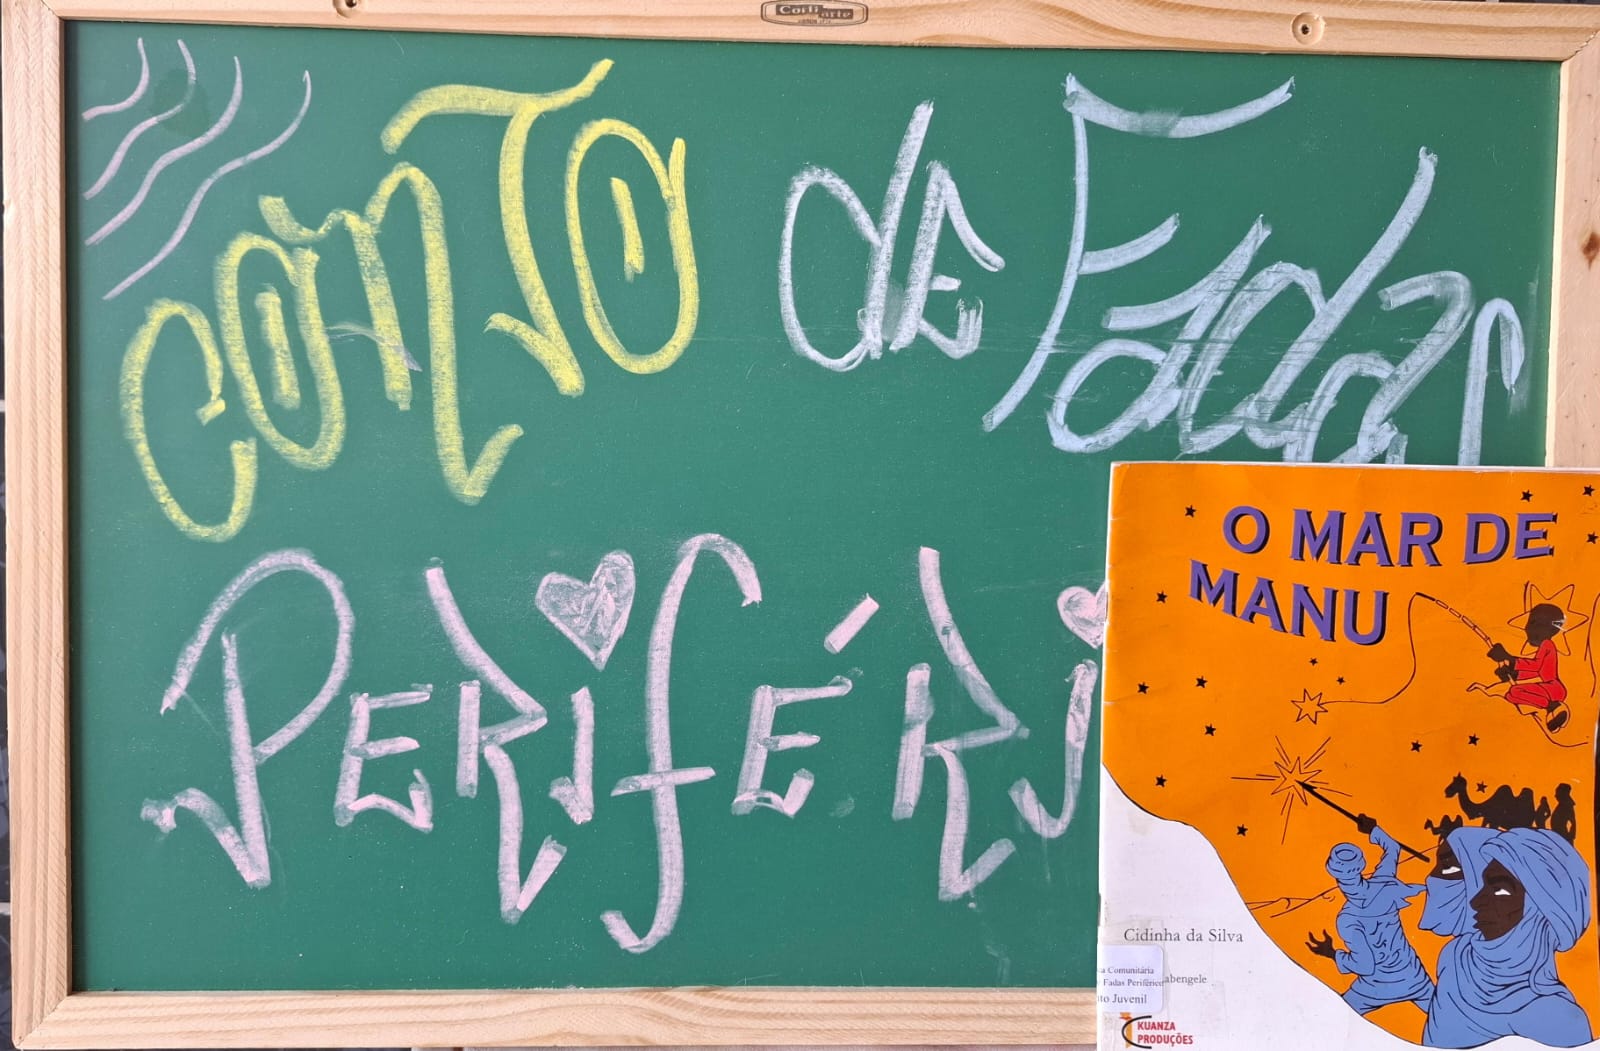 Corti arte
CONTO de Fadas
PERIFÉRI
O MAR DE
MANU
Cidinha da Silva
abengele
a Comunitária
Fadas Periférico
to Juvenil
KUANZA
PRODUÇÕES